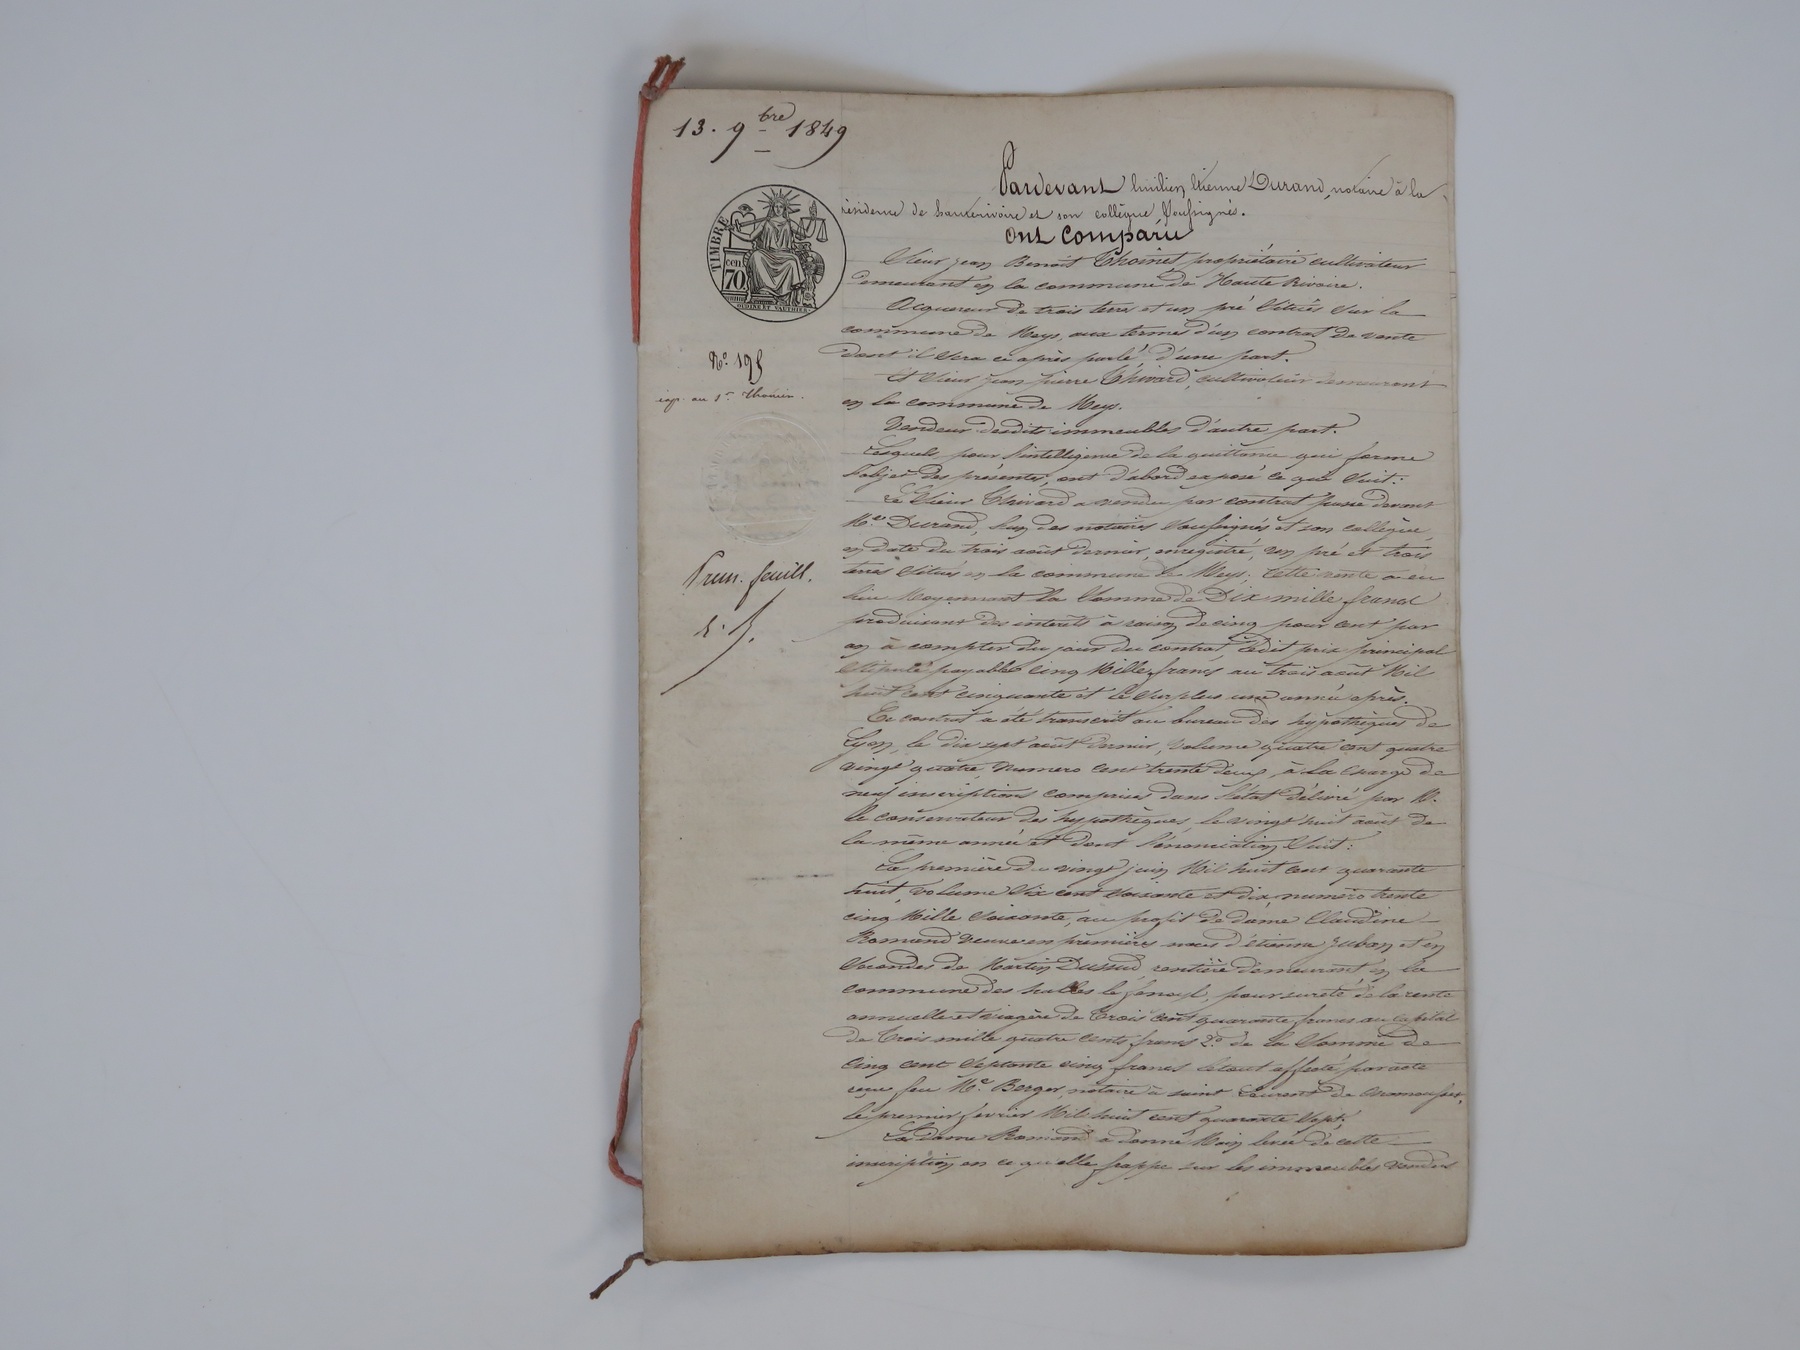 13. 9bre 1849
TIMBRE
cen
70.
OUDINE ET VAUTHIER
No. 195
Prem. feuill.
Pardevant Etienne Durand, notaire à la
résidence de hauterivoire et son collègue soussignés.
ont comparu
Sieur jean Benoit Thoinet propriétaire cultivateur
demeurant en la commune de Haute Rivoire.
Acquereur de trois terres et un pré Situés sur la
commune de Meys, aux termes d'un contrat de vente
dont il sera ci après parlé d'une part.
Et Sieur jean pierre Thivard, cultivateur demeurant
en la commune de Meys.
Vendeur desdits immeubles d'autre part.
Lesquels, pour l'intelligence de la quittance qui forme
l'objet des présentes, ont d'abord exposé ce qui Suit:
Le Sieur Thivard a vendu par contrat passé devant
Me. Durand, l'un des notaires soussignés et son collègue
en date du trois août dernier, enregistré, un pré et trois
terres Situés en la commune de Meys; cette vente a eu
lieu Moyennant la Somme de Dix mille francs
produisant des intérêts à raison de cinq pour cent par
an à compter du jour du contrat, Ledit prix principal
stipulé payable cinq Mille francs au trois août Mil
huit cent cinquante et le Surplus une année après.
Ce contrat a été transcrit au bureau des hypothèques de
Lyon, le dix sept août dernier, volume quatre cent quatre
vingt quatre, numero cent trente deux, à la charge de
neuf inscriptions comprises dans l'état délivré par M.
le conservateur des hypothèques, le vingt huit août de
la même année et dont l'énonciation Suit:
La première du vingt juin Mil huit cent quarante
huit, volume Six cent soixante et dix numéro trente
cinq Mille Soixante, au profit de dame Claudine
Romand veuve en premières noces d'étienne Juban et en
Secondes de Martin Dussud, rentière demeurant en la
commune des halles le fenoyl, pour sureté de la rente
annuelle et viagère de Trois cent quarante francs au capital
de Trois mille quatre cents francs 2o. de la Somme de
Cinq cent Septante cinq francs le tout par acte
reçu feu Me. Berger, notaire à saint Laurent de chamousset,
le premier février Mil huit cent quarante Sept;
La dame Romand a donné Main levée de cette
inscription en ce qu'elle frappe sur les immeubles vendus